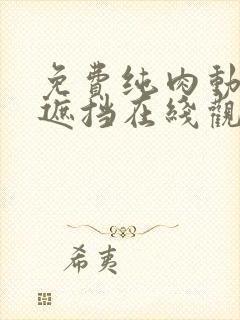 免费纯肉動
遮挡在綫觀
希夷